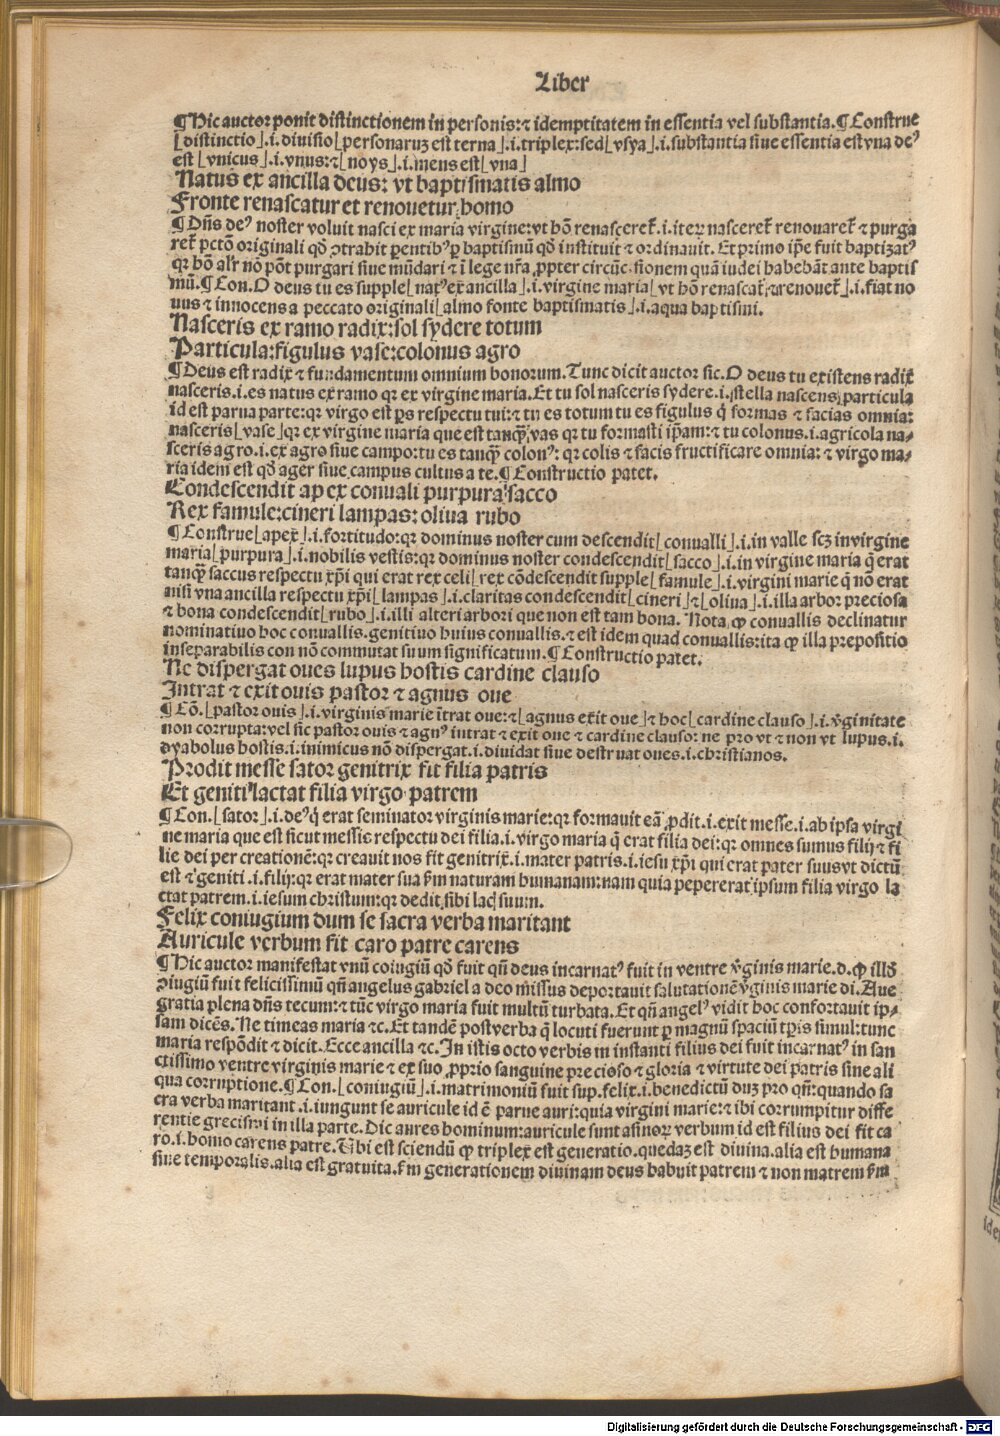 Liber
¶Hic auctor ponit distinctionem in personis:⁊ idemptitatem in essentia vel substantia.¶Construe
⌊distinctio⌋.i.diuisio⌊personaruꝫ est terna⌋.i.triplex:sed⌊vsya⌋.i.substantia siue essentia est vna deꝰ
est ⌊vnicus⌋.i.vnus:⁊⌊noys⌋.i.mens est⌊vna⌋
Natus ex ancilla deus: vt baptismatis almo
Fronte renascatur et renouetur homo
¶Dñs deꝰ noster voluit nasci ex maria virgine:vt hõ renasceret̃.i.iterꝝ nasceret̃ renouaret̃ ⁊ purga
ret̃ pctõ originali qđ ꝯtrahit parentibꝰ ꝑ baptismũ qđ instituit ⁊ ordinauit. Et primo ip̃e fuit baptizatꝰ
qꝛ hõ alr̃ nõ põt purgari siue mũdari ⁊ ĩ lege nr̃a ꝓpter circũcisionem quã iudei habebãt ante baptis
mũ.¶Con.O deus tu es supple⌊natꝰ ex ancilla⌋.i.virgine maria⌊vt hõ renascat̃ ⁊ renouet̃⌋.i.fiat no
uus ⁊ innocens a peccato originali⌊almo fonte baptismatis⌋.i.aqua baptismi.
Nasceris ex ramo radix:sol sydere totum
Particula:figulus vase:colonus agro
¶Deus est radix ⁊ fundamentum omnium bonorum.Tunc dicit auctor sic.O deus tu existens radix
nasceris.i.es natus ex ramo qꝛ ex virgine maria. Et tu sol nasceris sydere.i.stella nascens particula
id est parua parte:qꝛ virgo est ꝑs respectu tui:⁊ tu es totum tu es figulus q̃ formas ⁊ facias omnia:
nasceris⌊vase⌋qꝛ ex virgine maria que est tanq̃ vas qꝛ tu formasti ip̃am:⁊ tu colonus.i.agricola na-
sceris agro.i.ex agro siue campo:tu es tanq̃ colonꝰ: qꝛ colis ⁊ facis fructificare omnia: ⁊ virgo ma-
ria idem est qđ ager siue campus cultus a te.¶Constructio patet.
Condescendit apex conuali purpura sacco
Rex famule:cineri lampas: oliua rubo
¶Construe⌊apex⌋.i.fortitudo:qꝛ dominus noster cum descendit⌊conualli⌋.i.in valle scꝫ in virgine
maria⌊purpura⌋.i.nobilis vestis:qꝛ dominus noster condescendit⌊sacco⌋.i.in virgine maria q̃ erat
tanq̃ saccus respectu xp̃i qui erat rex celi⌊rex cõdescendit supple⌊famule⌋.i.virgini marie q̃ nõ erat
nisi vna ancilla respectu xp̃i⌊lampas⌋.i.claritas condescendit⌊cineri⌋⁊⌊oliua⌋.i.illa arbor preciosa
⁊ bona condescendit⌊rubo⌋.i.illi alteri arbori que non est tam bona. Nota ꝙ conuallis declinatur
nominatiuo hoc conuallis.genitiuo huius conuallis.⁊ est idem quad conuallis:ita ꝙ illa prepositio
inseparabilis con nõ commutat suum significatum.¶Constructio patet.
Ne dispergat oues lupus hostis cardine clauso
Intrat ⁊ exit ouis pastor ⁊ agnus oue
¶Cõ.⌊pastor ouis⌋.i.virginis marie ĩtrat oue:⁊⌊agnus exit oue⌋⁊ hoc⌊cardine clauso⌋.i.v̓ginitate
non corrupta:vel sic pastor ouis ⁊ agnꝰ intrat ⁊ exit oue ⁊ cardine clauso: ne pro vt ⁊ non vt lupus.i.
dyabolus hostis.i.inimicus nõ dispergat.i.diuidat siue destruat oues.i.christianos.
Prodit messe sator genitrix fit filia patris
Et geniti lactat filia virgo patrem
¶Con.⌊sator⌋.i.deꝰ q̃ erat seminator virginis marie:qꝛ formauit eã ꝓdit.i.exit messe.i.ab ipsa virgi
ne maria que est sicut messis respectu dei filia.i.virgo maria q̃ erat filia dei:qꝛ omnes sumus filij ⁊ fi
lie dei per creationẽ:qꝛ creauit nos fit genitrix.i.mater patris.i.iesu xp̃i qui erat pater suus vt dictũ
est ⁊ geniti.i.filij:qꝛ erat mater sua ẜm naturam humanam:nam quia pepererat ipsum filia virgo la
ctat patrem.i.iesum christum:qꝛ dedit sibi lac suum.
Felix coniugium dum se sacra verba maritant
Auricule verbum fit caro patre carens
¶Hic auctor manifestat vnũ coiugiũ qđ fuit qñ deus incarnatꝰ fuit in ventre v̓ginis marie.d.ꝙ illđ
ꝯiugiũ fuit felicissimũ qñ angelus gabriel a deo missus deportauit salutationẽ v̓ginis marie di. Aue
gratia plena dñs tecum:⁊ tũc virgo maria fuit multũ turbata. Et qñ angelꝰ vidit hoc confortauit ip-
sam dicẽs. Ne timeas maria ⁊c. Et tandẽ post verba q̃ locuti fuerunt ꝑ magnũ spaciũ tꝑis simul:tunc
maria respõdit ⁊ dicit. Ecce ancilla ⁊c. In istis octo verbis in instanti filius dei fuit incarnatꝰ in san
ctissimo ventre virginis marie ⁊ ex suo ꝓprio sanguine precioso ⁊ gloria ⁊ virtute dei patris sine ali
qua corruptione.¶Con.⌊coniugiũ⌋.i.matrimoniũ fuit sup.felix.i.benedictũ duꝫ pro qñ:quando sa
cra verba maritant.i.iungunt se auricule id ẽ parue auri:quia virgini marie:⁊ ibi corrumpitur diffe
rentie grecismi in illa parte. Dic aures hominum:auricule sunt asinoꝝ verbum id est filius dei fit ca
ro.i.homo carens patre. Ubi est sciendũ ꝙ triplex est generatio.quedaꝫ est diuina.alia est humana
siue temporalis.alia est gratuita.ẜm generationem diuinam deus habuit patrem ⁊ non matrem ẜm
Digitalisierung gefördert durch die Deutsche Forschungsgemeinschaft - DFG